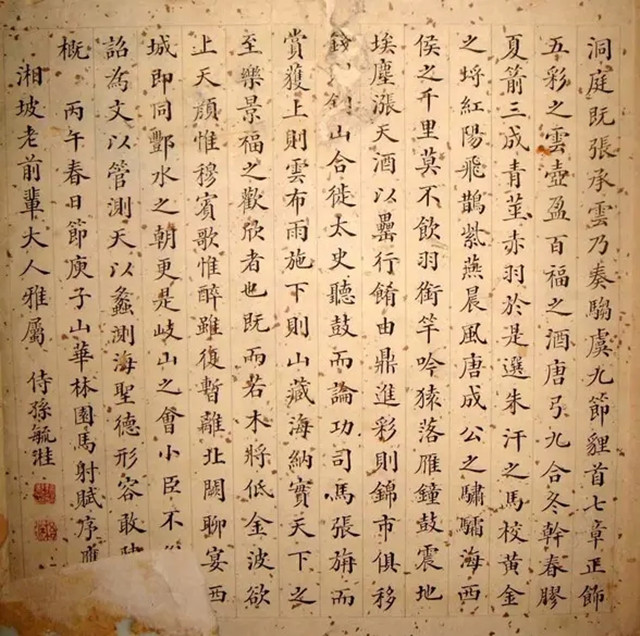 洞庭既張承雲乃奏騶虞九節貍首七章正飾
五彩之雲壺盈百福之酒唐弓九合冬幹春膠
夏箭三成青莖赤羽於是選朱汗之馬校黃金
之埒紅陽飛鵲紫燕晨風唐成公之驌驦海西
侯之千里莫不飲羽銜竿吟猿落雁鐘鼓震地
埃塵漲天酒以罍行餚由鼎進彩則錦市俱移
錢則銅山合徙太史聽鼓而論功司馬張旃而
賞獲上則雲布雨施下則山藏海納實天下之
至樂景福之歡欣者也既而若木將低金波欲
上天顏惟穆賓歌惟醉雖復暫離北闕聊宴西
城即同酆水之朝更是岐山之會小臣不
詔為文以管測天以蠡測海聖德形容敢
概 丙午春日節庾子山華林園馬射賦序應
湘坡老前輩大人雅屬 侍孫毓溎